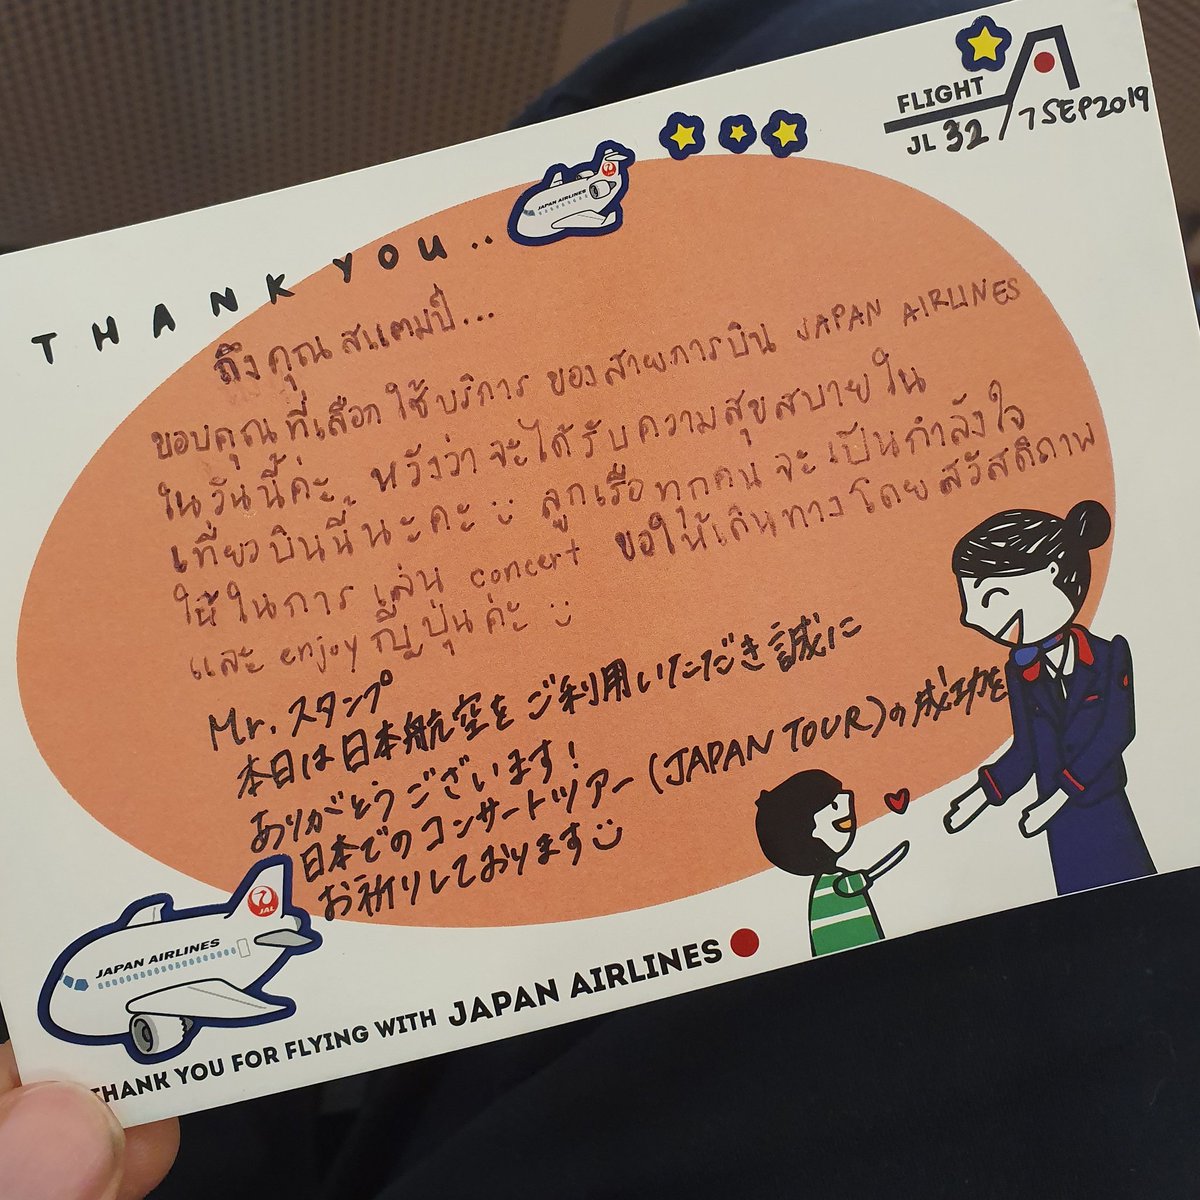 FLIGHT
JL 32 / 7 SEP 2019
JAPAN AIRLINES
THANK YOU..
ถึงคุณ สแตมป์...
ขอบคุณ ที่เลือก ใช้บริการ ของสายการบิน JAPAN AIRLINES
ในวันนี้ค่ะ หวังว่า จะได้รับ ความสุขสบาย ใน
เที่ยวบินนี้ นะคะ ลูกเรือ ทุกคน จะ เป็นกำลังใจ
ให้ ในการ เล่น concert ขอให้เดินทาง โดย สวัสดิภาพ
และ enjoy ญี่ปุ่นค่ะ
Mr. スタンプ
本日は日本航空をご利用いただき誠に
ありがとうございます!
日本でのコンサートツアー(JAPAN TOUR)の成功を
お祈りしております
JAPAN AIRLINES
JAL
THANK YOU FOR FLYING WITH JAPAN AIRLINES